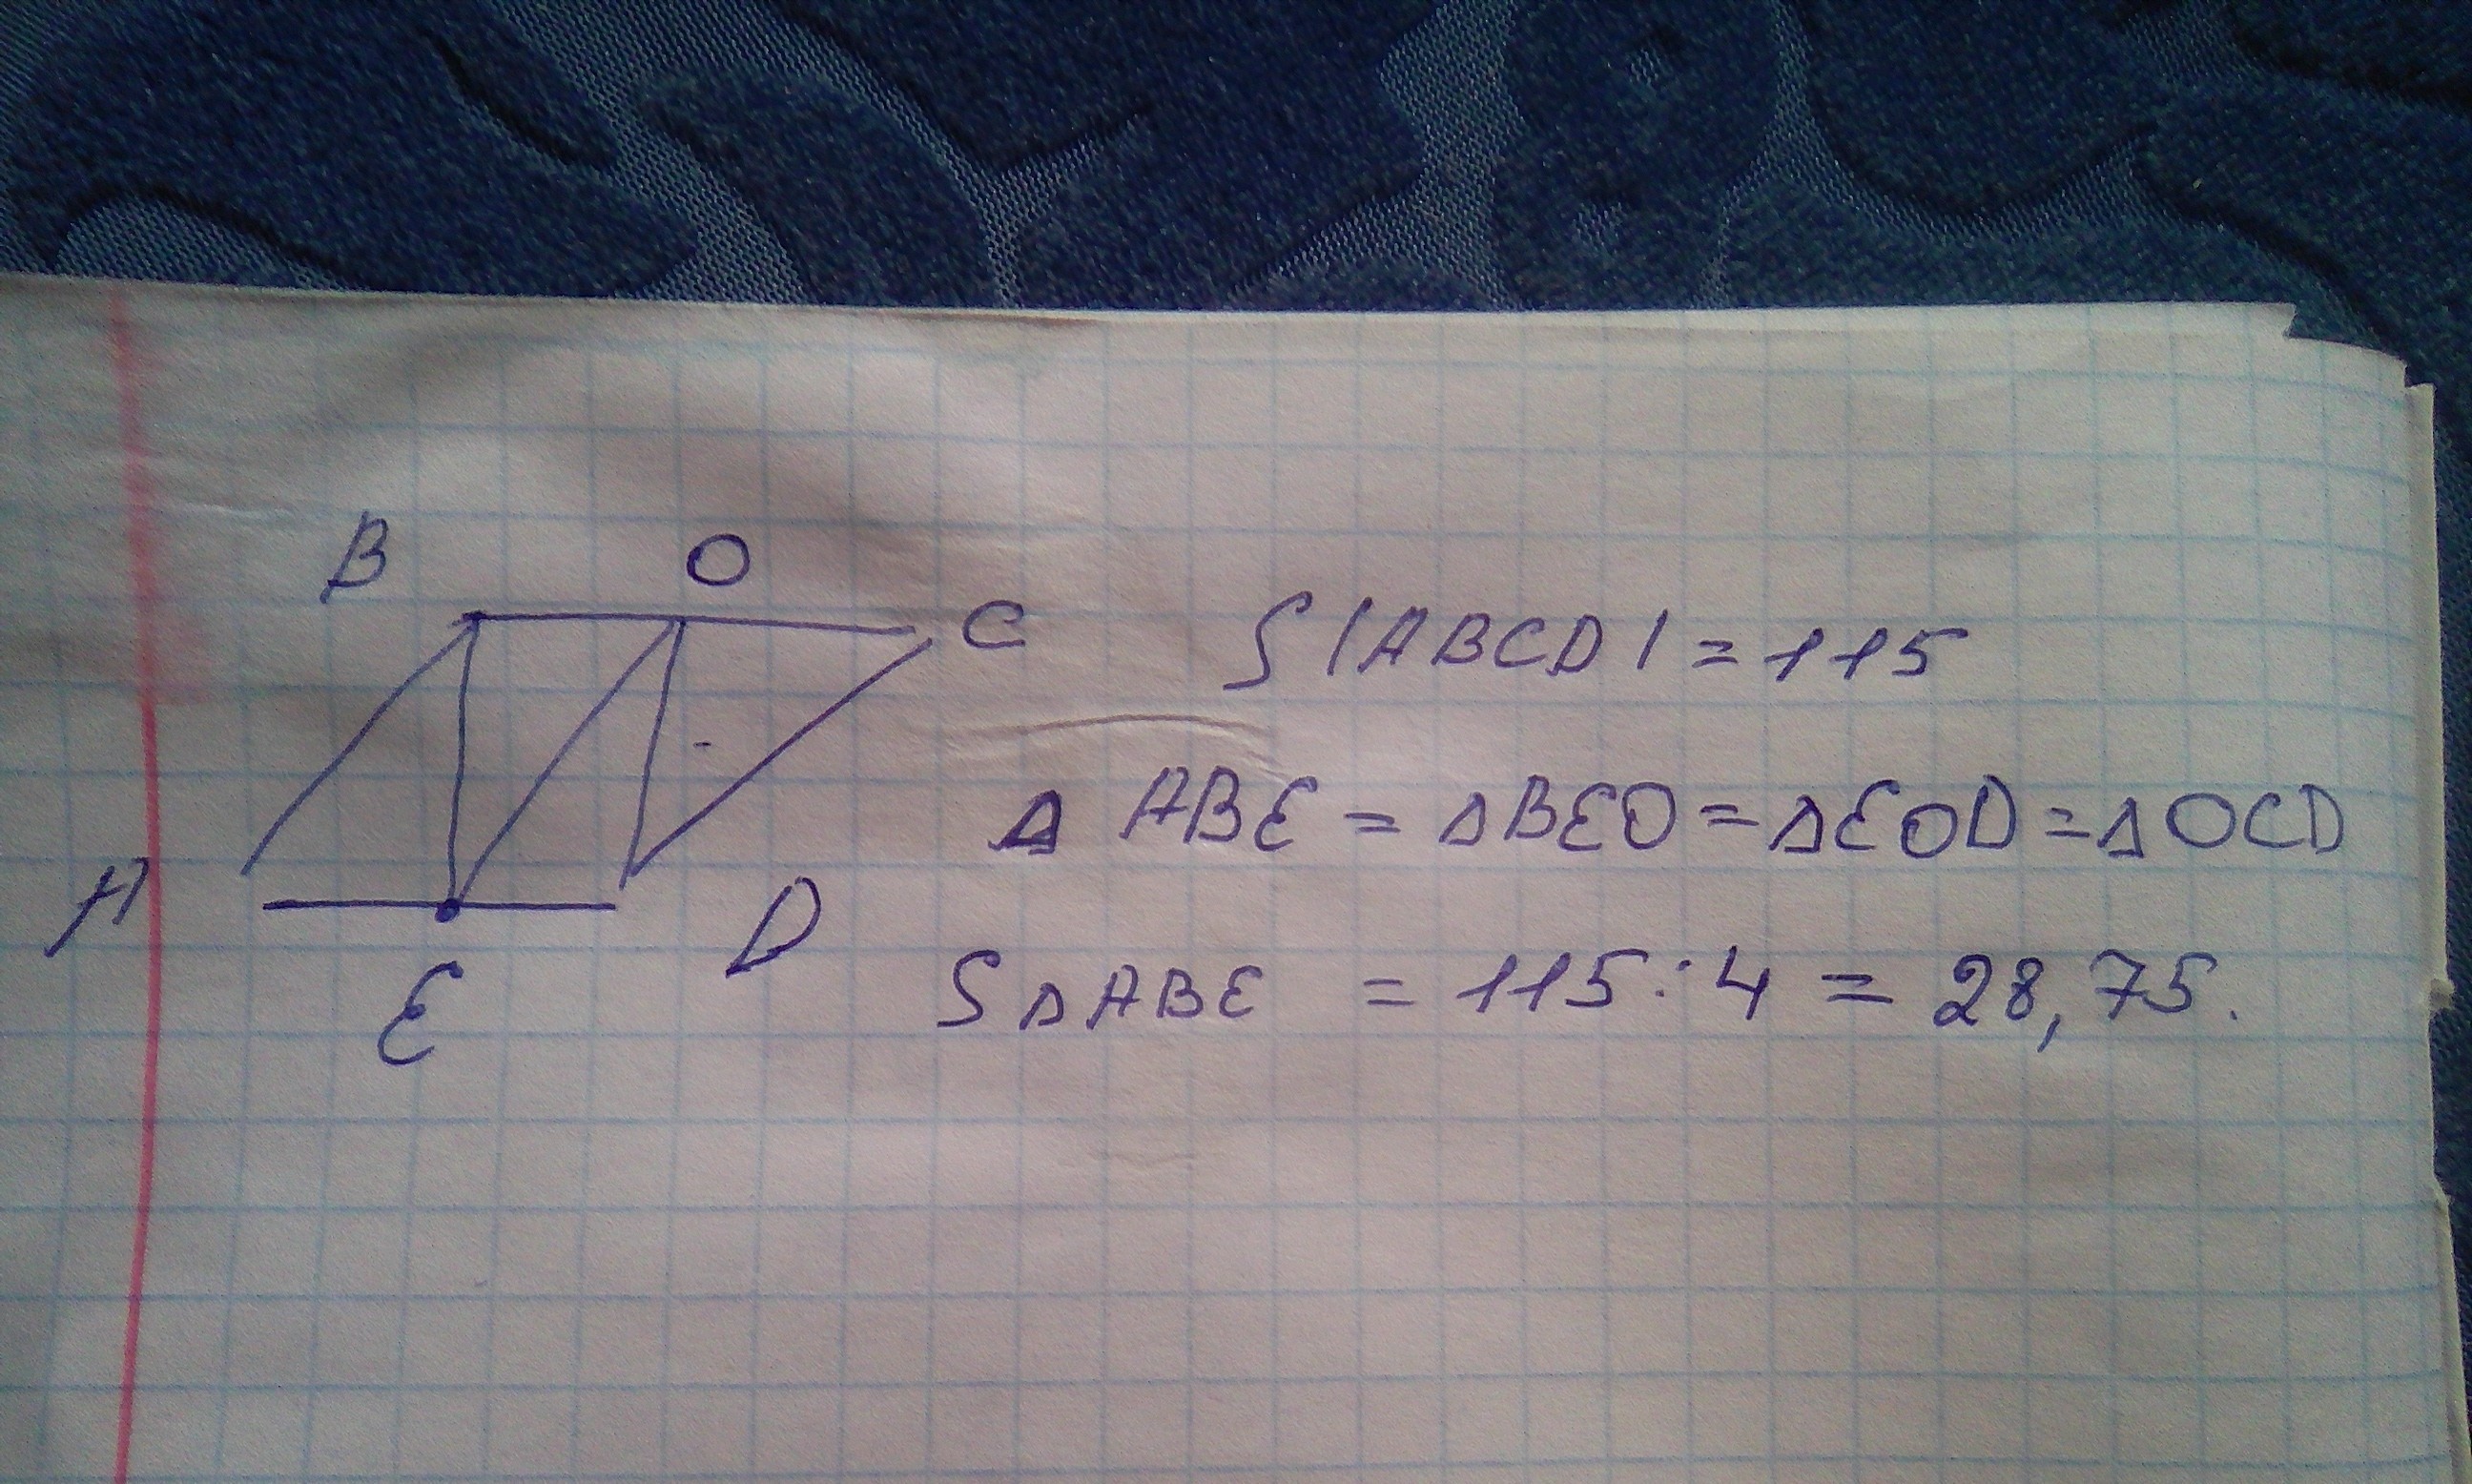 B O C
A E D
S(ABCD) = 115
Δ ABE = ΔBEO = ΔEOD = ΔOCD
SΔABE = 115:4 = 28,75.